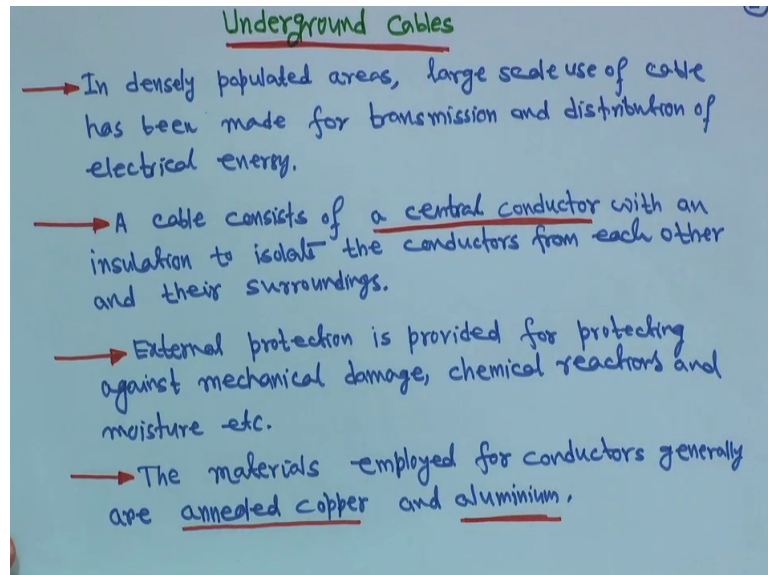 Underground Cables
→ In densely populated areas, large scale use of cable
has been made for transmission and distribution of
electrical energy.
→ A cable consists of a central conductor with an
insulation to isolate the conductors from each other
and their surroundings.
→ External protection is provided for protecting
against mechanical damage, chemical reactions and
moisture etc.
→ The materials employed for conductors generally
are annealed copper and aluminium.